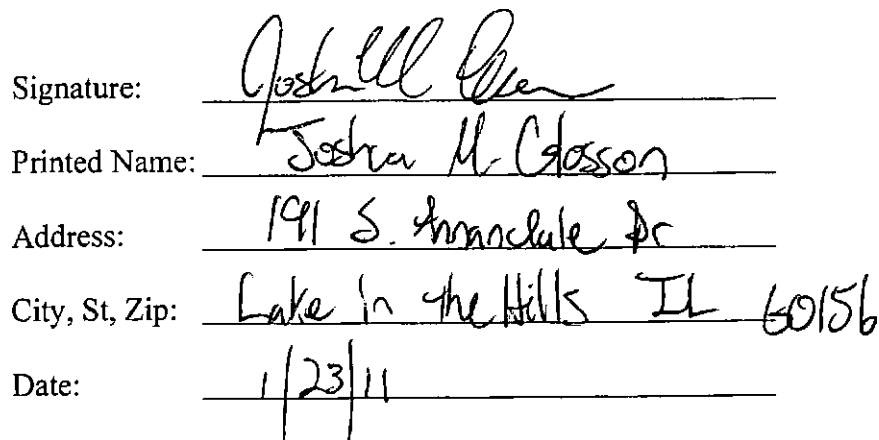 Signature: Joshua M
Printed Name: Joshua M. Glosson
Address: 191 S. Annandale Dr
City, St, Zip: Lake in the Hills IL 60156
Date: 1/23/11